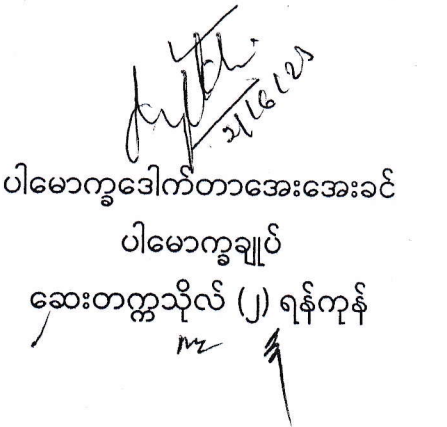 2/6/25
ပါမောက္ခဒေါက်တာအေးအေးခင်
ပါမောက္ခချုပ်
ဆေးတက္ကသိုလ် (၂) ရန်ကုန်